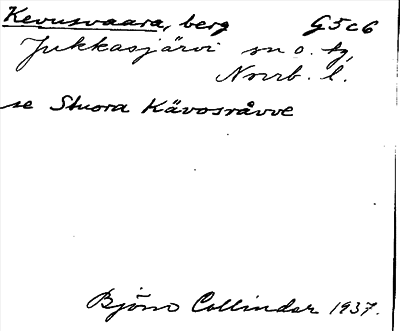 Kevusvaara, berg G5c6
Jukkasjärvi sn o. tg,
Norrb. l.
se Stuora Kävosråvve
Björn Collinder 1937.